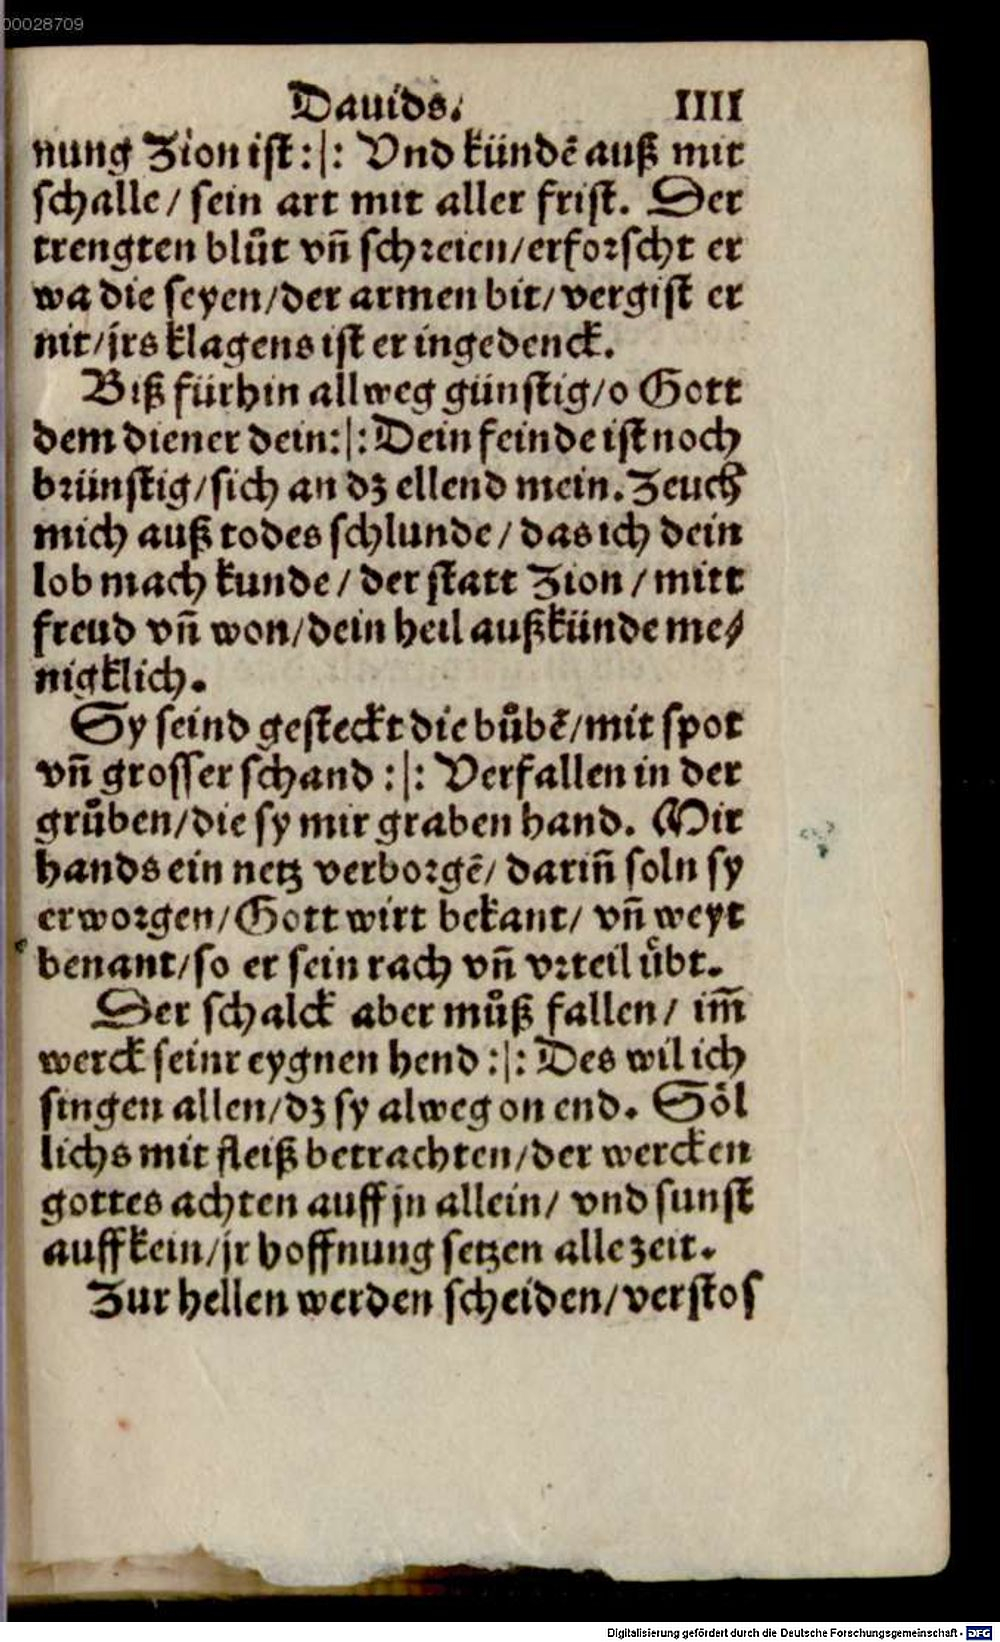 00028709
Dauids. IIII
nung Zion ist :|: Vnd kündẽ auß mit
schalle / sein art mit aller frist. Der
trengten blůt vñ schreien / erforscht er
wa die seyen / der armen bit / vergist er
nit / jrs klagens ist er ingedenck.
Biß fürhin allweg günstig / o Gott
dem diener dein :|: Dein feinde ist noch
brünstig / sich an dz ellend mein. Zeuch
mich auß todes schlunde / das ich dein
lob mach kunde / der statt Zion / mitt
freud vñ won / dein heil außkünde me⸗
nigklich.
Sy seind gesteckt die bůbẽ / mit spot
vñ grosser schand :|: Verfallen in der
grůben / die sy mir graben hand. Mir
hands ein netz verborgẽ / dariñ soln sy
erworgen / Gott wirt bekant / vñ weyt
benant / so er sein rach vñ vrteil uͤbt.
Der schalck aber můß fallen / im̃
werck seinr eygnen hend :|: Des wil ich
singen allen / dz sy alweg on end. Soͤl
lichs mit fleiß betrachten / der wercken
gottes achten auff jn allein / vnd sunst
auff kein / jr hoffnung setzen alle zeit.
Zur hellen werden scheiden / verstos
Digitalisierung gefördert durch die Deutsche Forschungsgemeinschaft - DFG